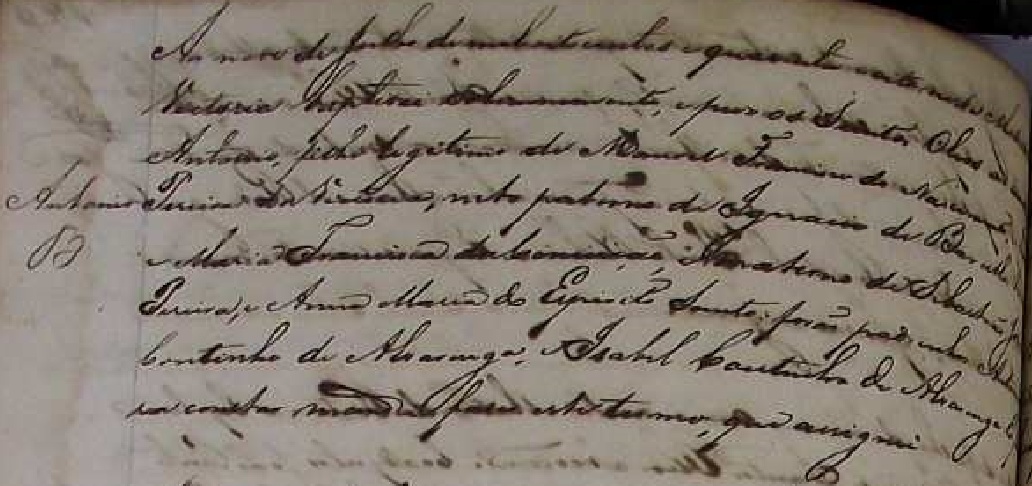 Aos nove de Julho de mil oito centos e quarenta e oito nesta
Victoria baptisei solemnemente, e puz os Santos Oleos a
Antonio, filho legitimo de Manoel Francisco do Nascimento,
Antonio Pereira da Victoria, neto paterno de Ignacio de
e Maria Francisca da Conceição, e materno de Sebastião
Pereira, e Anna Maria do Espirito Santo: forão padrinhos
Coutinho de Alvarenga, e Isabel Coutinho de Alvarenga
ra constar mandei fazer este termo, que assignei